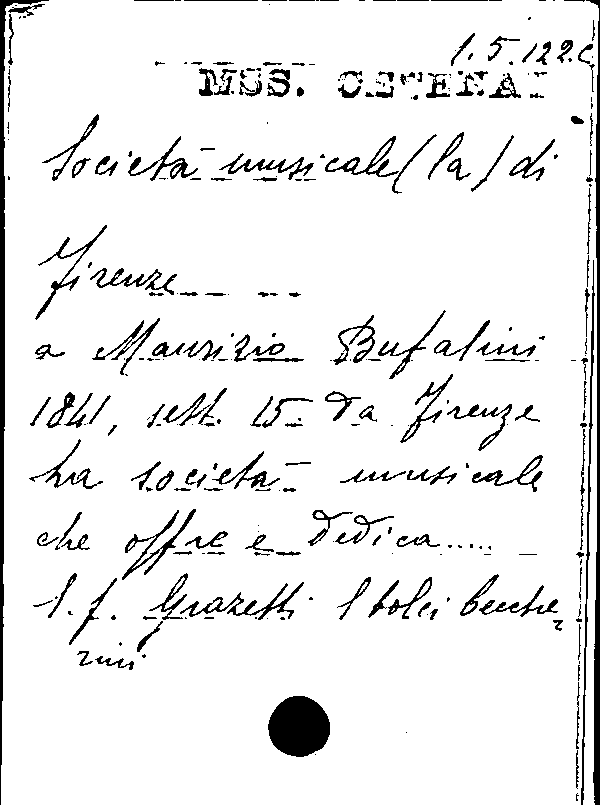 1.5.122.C
MSS. CESENA
Società musicale (la) di
Firenze
a Maurizio Bufalini
1841, sett. 15 Da Firenze
La società musicale
che offre e dedica.....
1. f. Grazetti